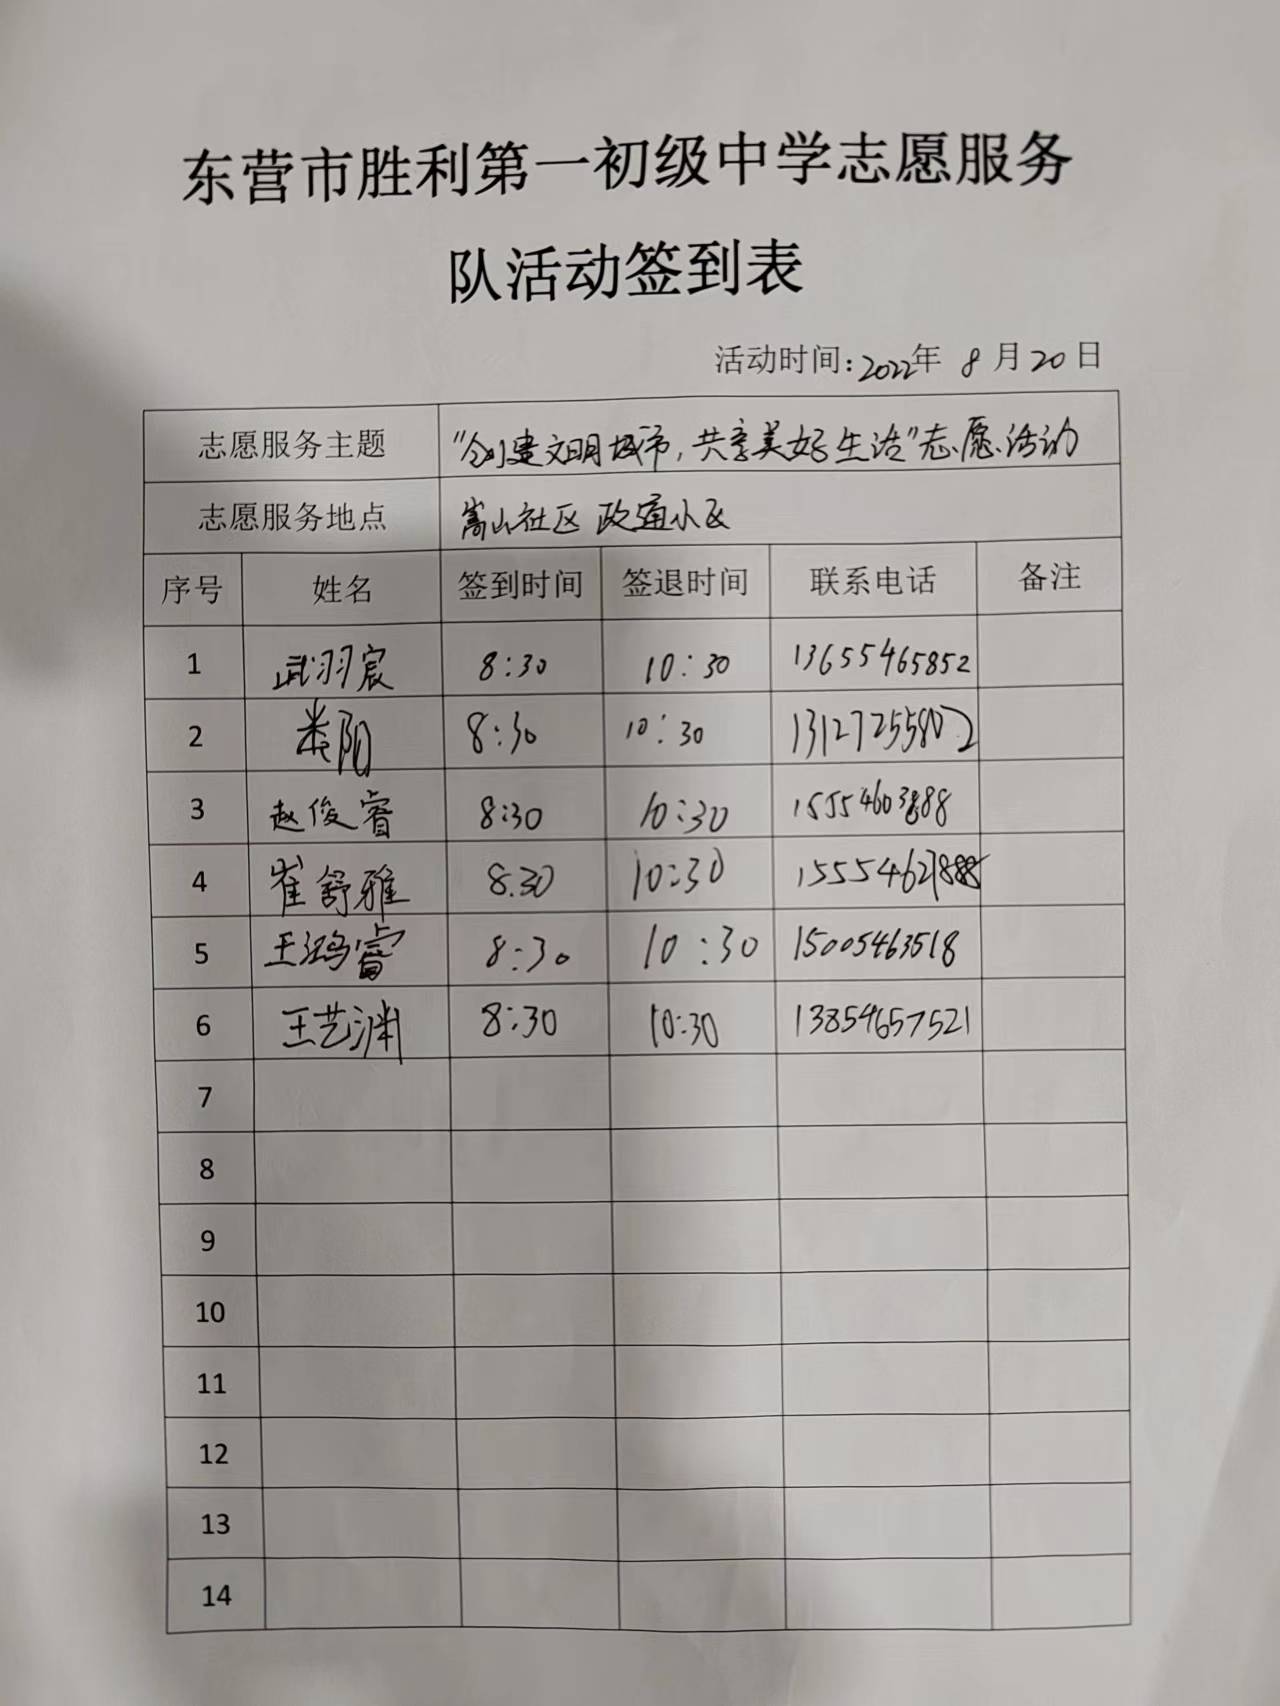 东营市胜利第一初级中学志愿服务
队活动签到表
活动时间:2022年 8月20日
志愿服务主题 "创建文明城市,共享美好生活"志愿活动
志愿服务地点 嵩山社区 政通小区
序号 姓名 签到时间 签退时间 联系电话 备注
1 武羽宸 8:30 10:30 13655465852
2 娄阳 8:30 10:30 13127255802
3 赵俊睿 8:30 10:30 15554603888
4 崔舒雅 8.30 10:30
5 王鸿睿 8:30 10:30 15005463518
6 王艺渊 8:30 10:30 13854657521
7
8
9
10
11
12
13
14